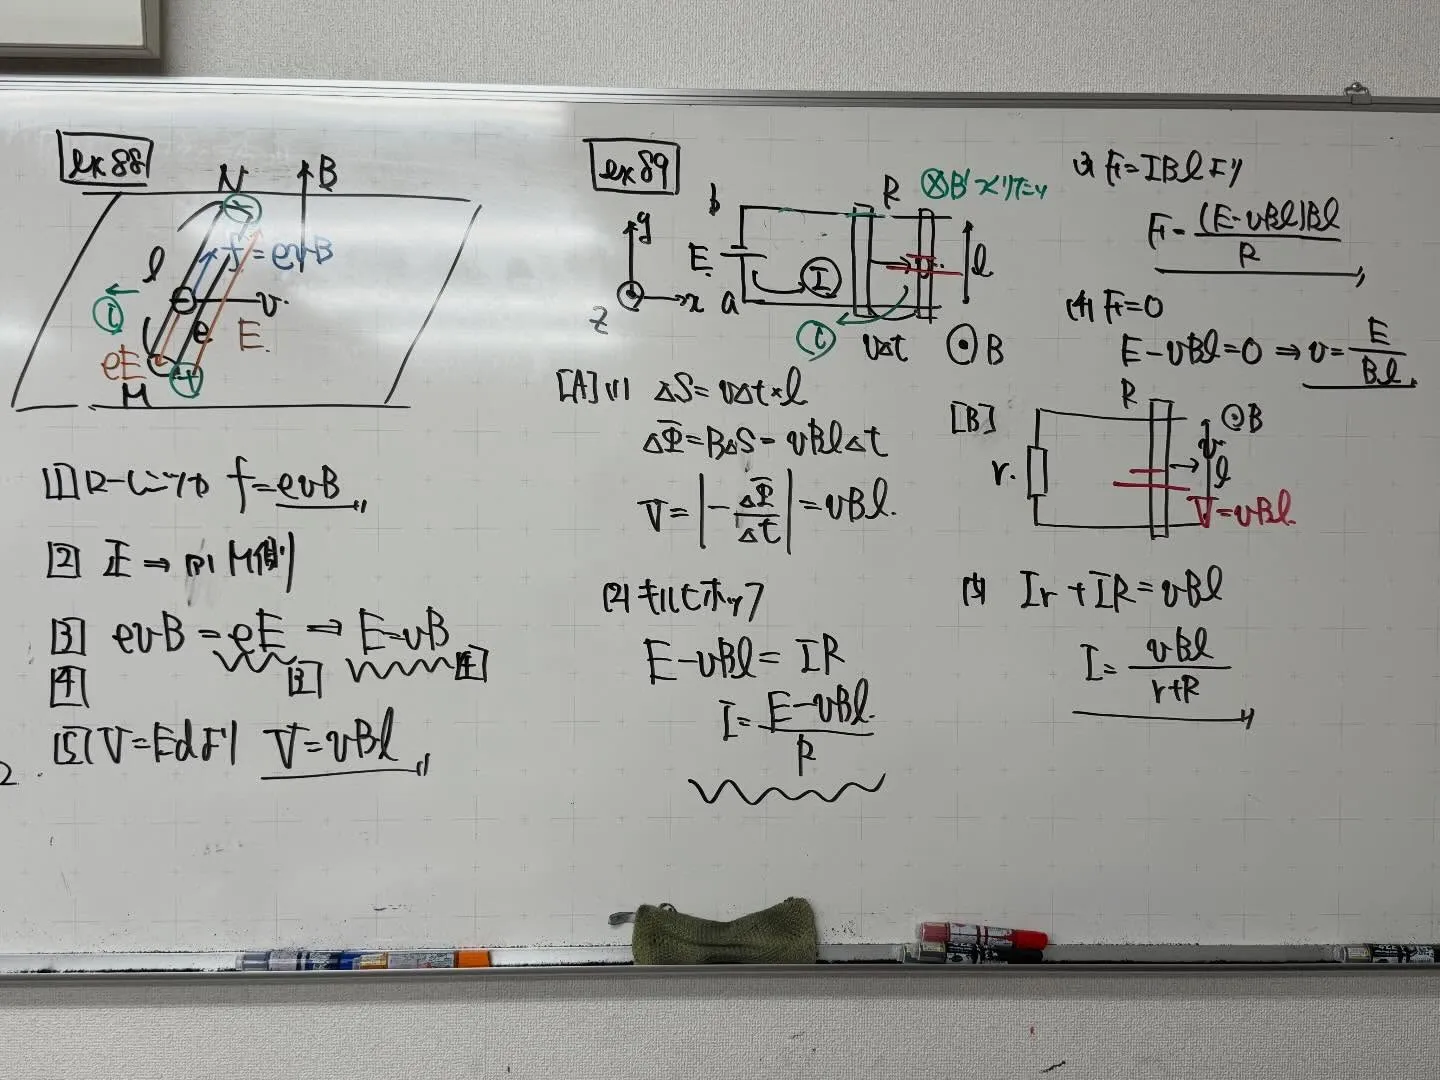 ex 88
N
B
l
f = evB
v
i
e
E
eE
M
[1] ローレンツ力 f = evB
[2] 正 ⇒ M側
[3] evB = eE ⇒ E = vB
[3]
[4]
[4]
[5] V = Ed より V = vBl
2
ex 89
y
x
z
b
E
a
I
R
⊗B'
l
i
vΔt
⊙B
[A] (1) ΔS = vΔt × l
ΔΦ = BΔS = vBlΔt
V = |- ΔΦ/Δt| = vBl
(2) キルヒホッフ
E - vBl = IR
I = (E - vBl)/R
(3) F = IBl より
F = (E - vBl)Bl/R
(4) F = 0
E - vBl = 0 ⇒ v = E/Bl
[B]
R
⊙B
r
v
l
V = vBl
(5) Ir + IR = vBl
I = vBl/(r+R)